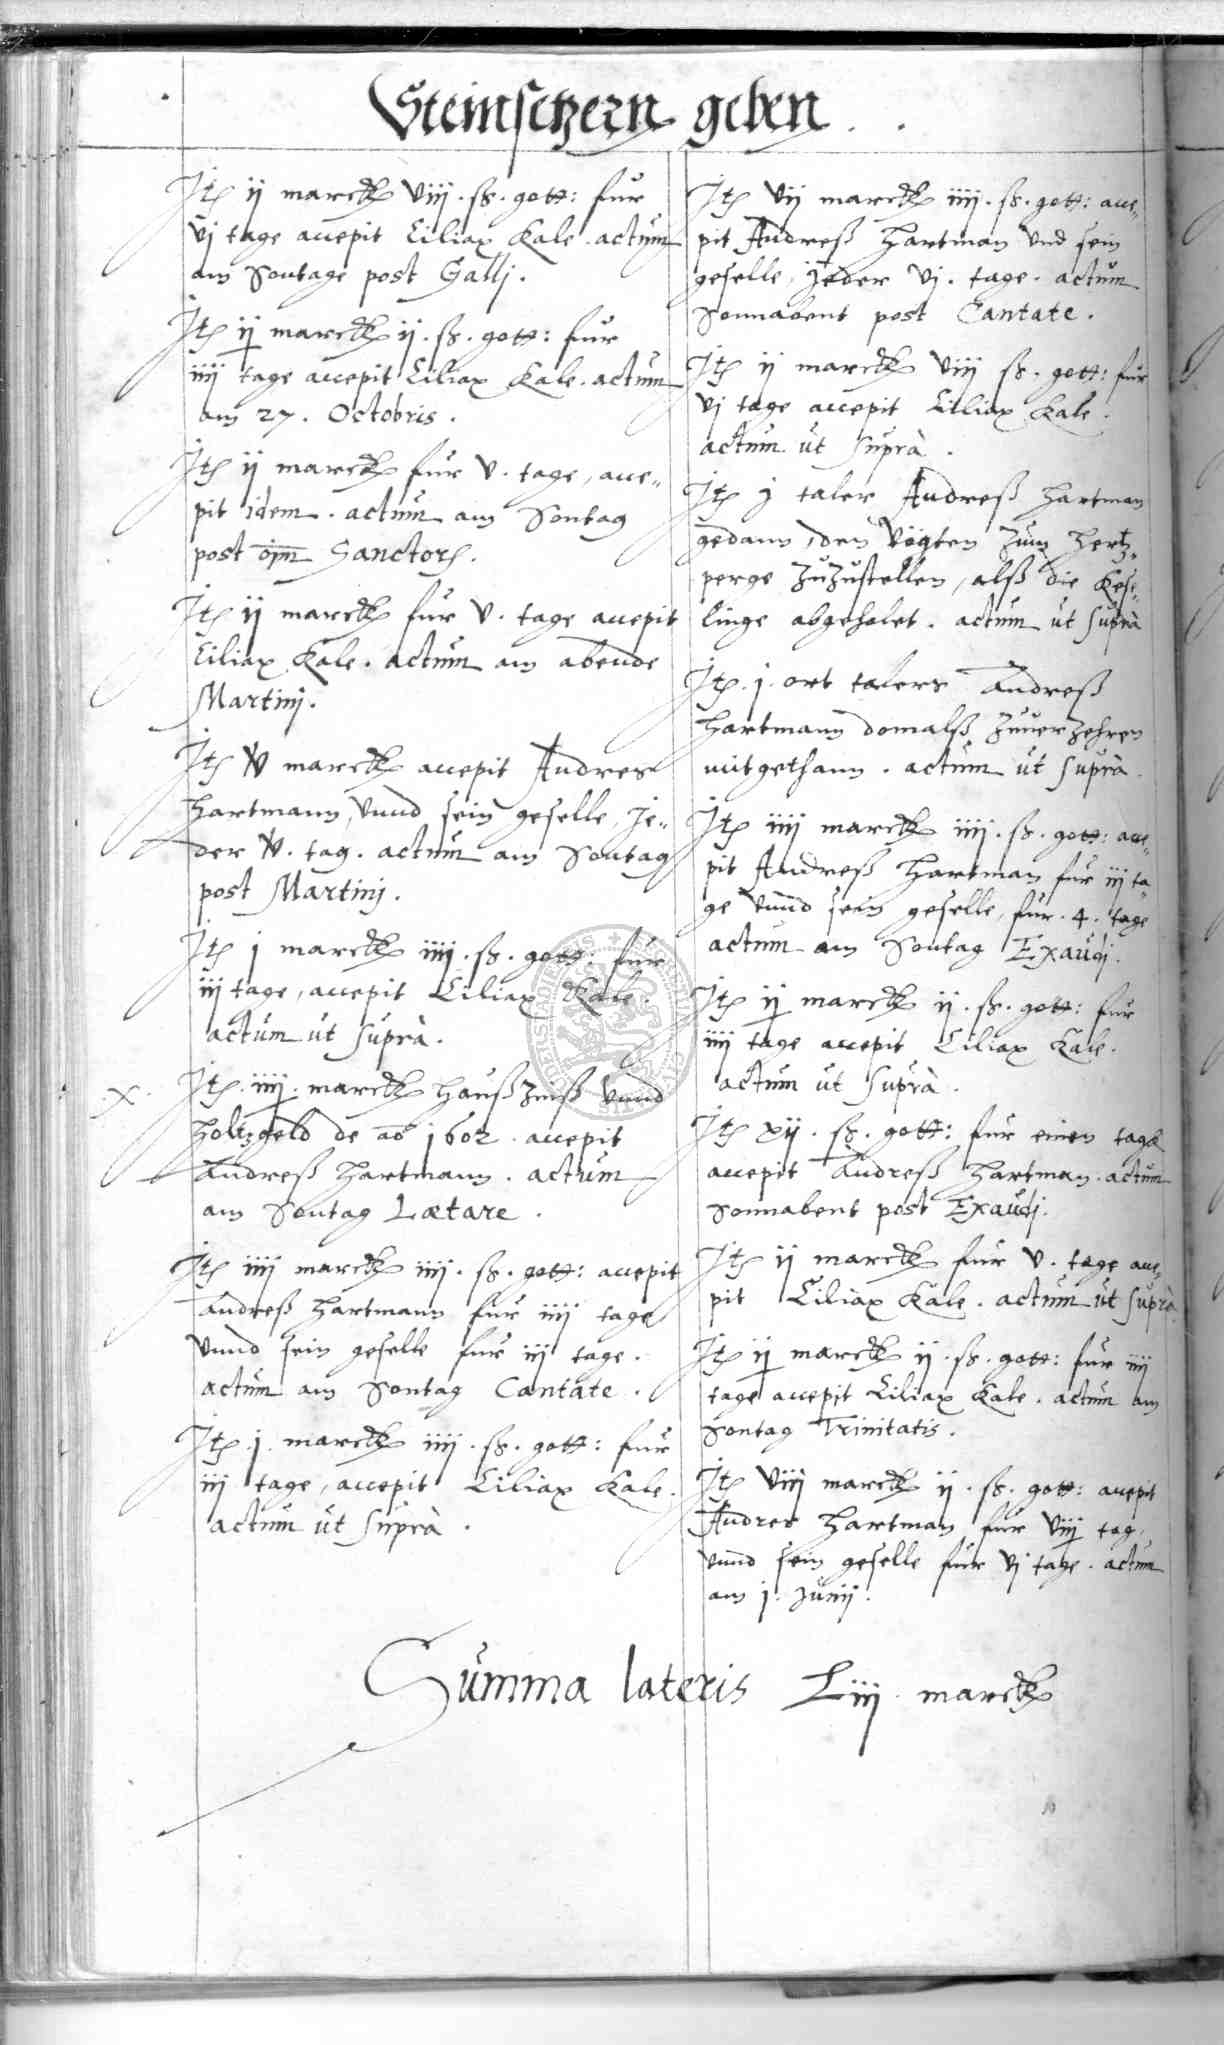 Steinsetzern geben.
Itē ij marck viij. ß. gott: fur
vj tage accepit Ciliax Kale. actum
am Sontage post Gallj.
Itē ij marck ij. ß. gott: fur
iiij tage accepit Ciliax Kale. actum
am 27. Octobris.
Itē ij marck fur v. tage, acce„
pit idem. actum am Sontag
post om̄ Sanctorū.
Itē ij marck fur v. tage accepit
Ciliax Kale. actum am abende
Martinj.
Itē iv marck accepit Andres
Hartmann, vnnd sein geselle, Je„
der v. tag. actum am Sontag
post Martinj.
Itē j marck iiij. ß. gott: fur
iij tage, accepit Ciliax Kale.
actum ut suprà.
.X. Itē. iiij. marck haußzinß vnnd
holtzgeld de aō 1602. accepit
Andreß Hartmann. actum
am Sontag Lætare.
Itē iiij marck iiij. ß. gott: accepit
Andreß Hartmann fur iiij tage
vnnd sein geselle fur iij tage.
actum am Sontag Cantate.
Itē. j. marck iiij. ß. gott: fur
iij tage, accepit Ciliax Kale.
actum ut suprà.
Itē vij marck iiij. ß. gott: acce„
pit Andreß Hartman vnd sein
geselle, jeder vj. tage. actum
Sonnabent post Cantate.
Itē ij marck viij ß. gott: fur
vj tage accepit Ciliax Kale.
actum ut suprà.
Itē j taler Andreß Hartman
gedann, den Vögten zum Hertz„
perge zuzustellen, alß die Kese„
linge abgeholet. actum ut suprà
Itē. j. ort talers Andreß
Hartmann domalß zuuerzehren
mitgethann. actum ut suprà.
Itē iiij marck iiij. ß. gott: acce„
pit Andreß Hartman fur iij ta„
ge vnnd sein geselle, fur. 4. tage
actum am Sontag Exaudi.
Itē ij marck ij. ß. gott: fur
iiij tage accepit Ciliax Kale.
actum ut suprà.
Itē xij. ß. gott: fur einen tage
accepit Andreß Hartman. actum
Sonnabent post Exaudi.
Itē ij marck fur v. tage acce„
pit Ciliax Kale. actum ut suprà
Itē ij marck ij. ß. gott: fur iiij
tage accepit Ciliax Kale. actum am
Sontag Trinitatis.
Itē viij marck ij. ß. gott: accepit
Andres Hartman fur viij tag,
vnnd sein geselle fur vj tage. actum
am j. Junij.
Summa lateris Liij. marck